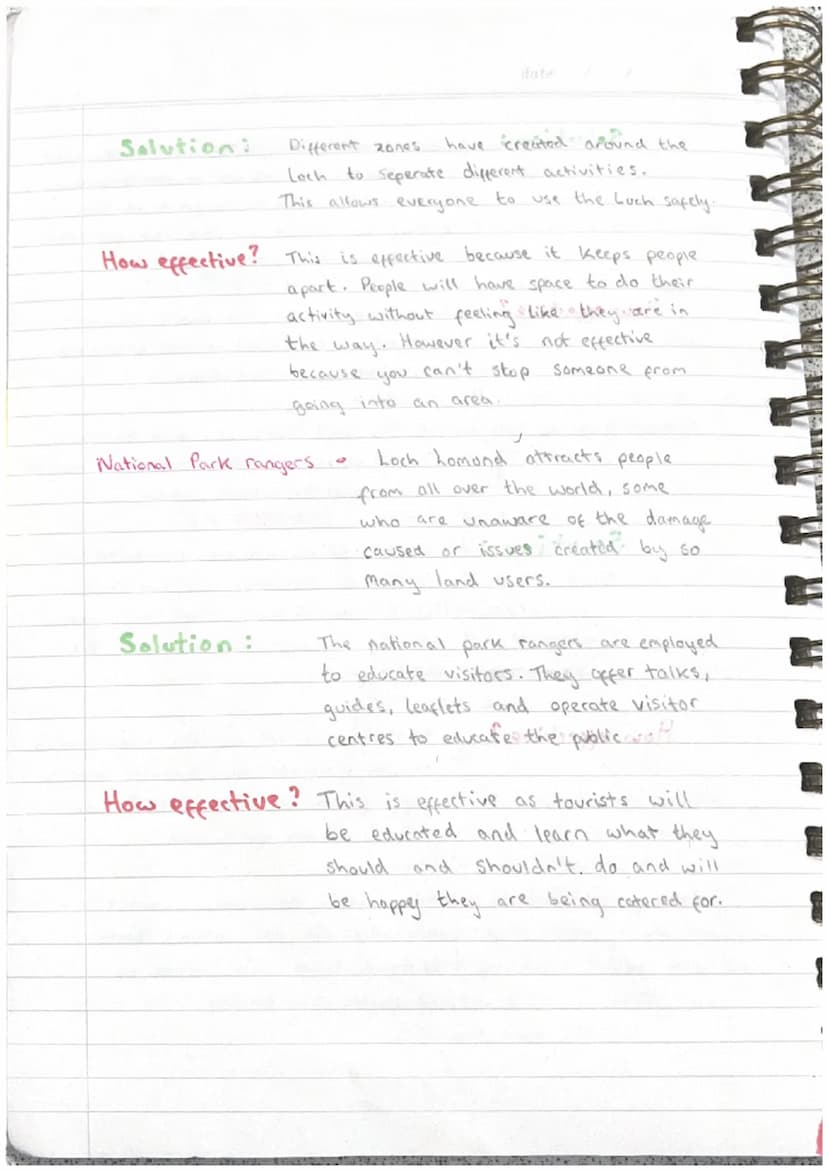 date
Solution: Different zones have created around the
Loch to seperate different activities.
This allows everyone to use the Loch safely.
How effective? This is effective because it keeps people
apart. People will have space to do their
activity without feeling like they are in
the way. However it's not effective
because you can't stop someone from
going into an area.
National Park rangers - Loch Lomond attracts people
from all over the world, some
who are unaware of the damage
caused or issues created by so
many land users.
Solution: The national park rangers are employed
to educate visitors. They offer talks,
guides, leaflets and operate visitor
centres to educate the public
How effective? This is effective as tourists will
be educated and learn what they
should and shouldn't do and will
be happy they are being catered for.